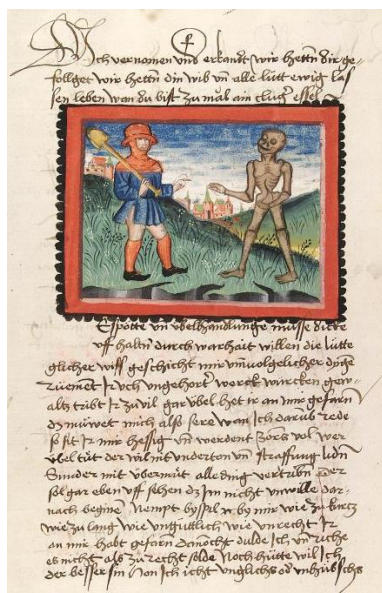 Ich vernomen und erkandt wir hettn dir ge-
follget wir hettn din wib vn alle lütt ewig las
sen leben wan du bist zu mal ain cluger essel
Espötte vn vbelhandlunge müsse dicke
vff haltn durch warhait willen die lütte
glicher wiss geschicht mir vnuolgelicher dinge
rüemet Ir vch vngehort werck würcken gew-
alts tribt Ir zu vil gar vbel het ir an mir gefarn
dz müwet mich also sere wan Ich darüb rede
so sit Ir mir hessig vn werdent Zorns vol wer
vbel tüt der wil mit underton vn straffung lidn
Sunder mit vbermüt alle ding vertribn der
sol gar eben vff sehen dz Im nicht vnwille dar-
nach begine Nempt byspil by mir wie zu kurtz
wie zu lang wie vngüttlich wie unrecht Ir
an mir habt gefarn dannocht dulde Ich vn riche
es nicht als zu recht solde Noch hütte wil Ich
der besser sin Hon Ich icht vnglichs od vnhübschs